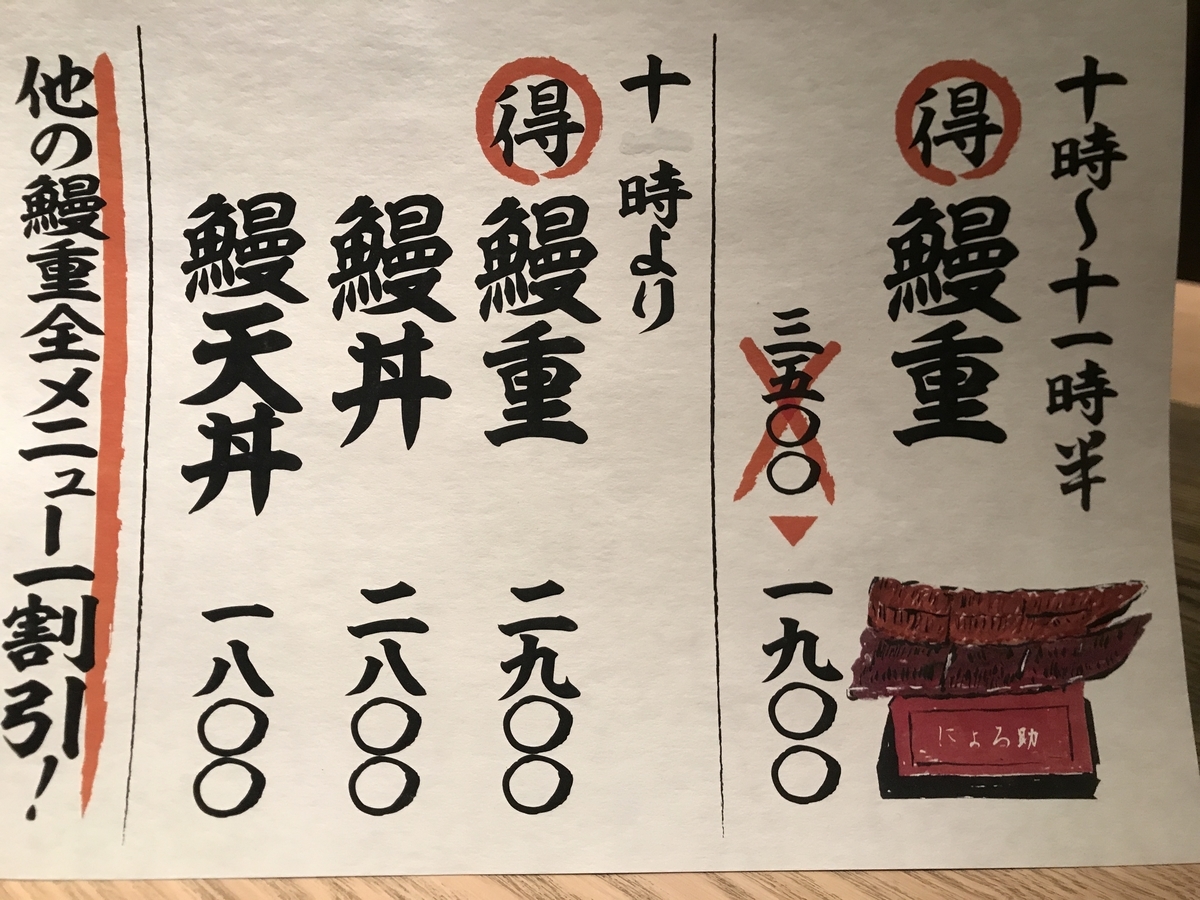 十時〜十一時半
得鰻重
にょろ助
三五〇〇
一九〇〇
十時より
得鰻重 二九〇〇
鰻丼 二八〇〇
鰻天丼 一八〇〇
他の鰻重全メニュー一割引！